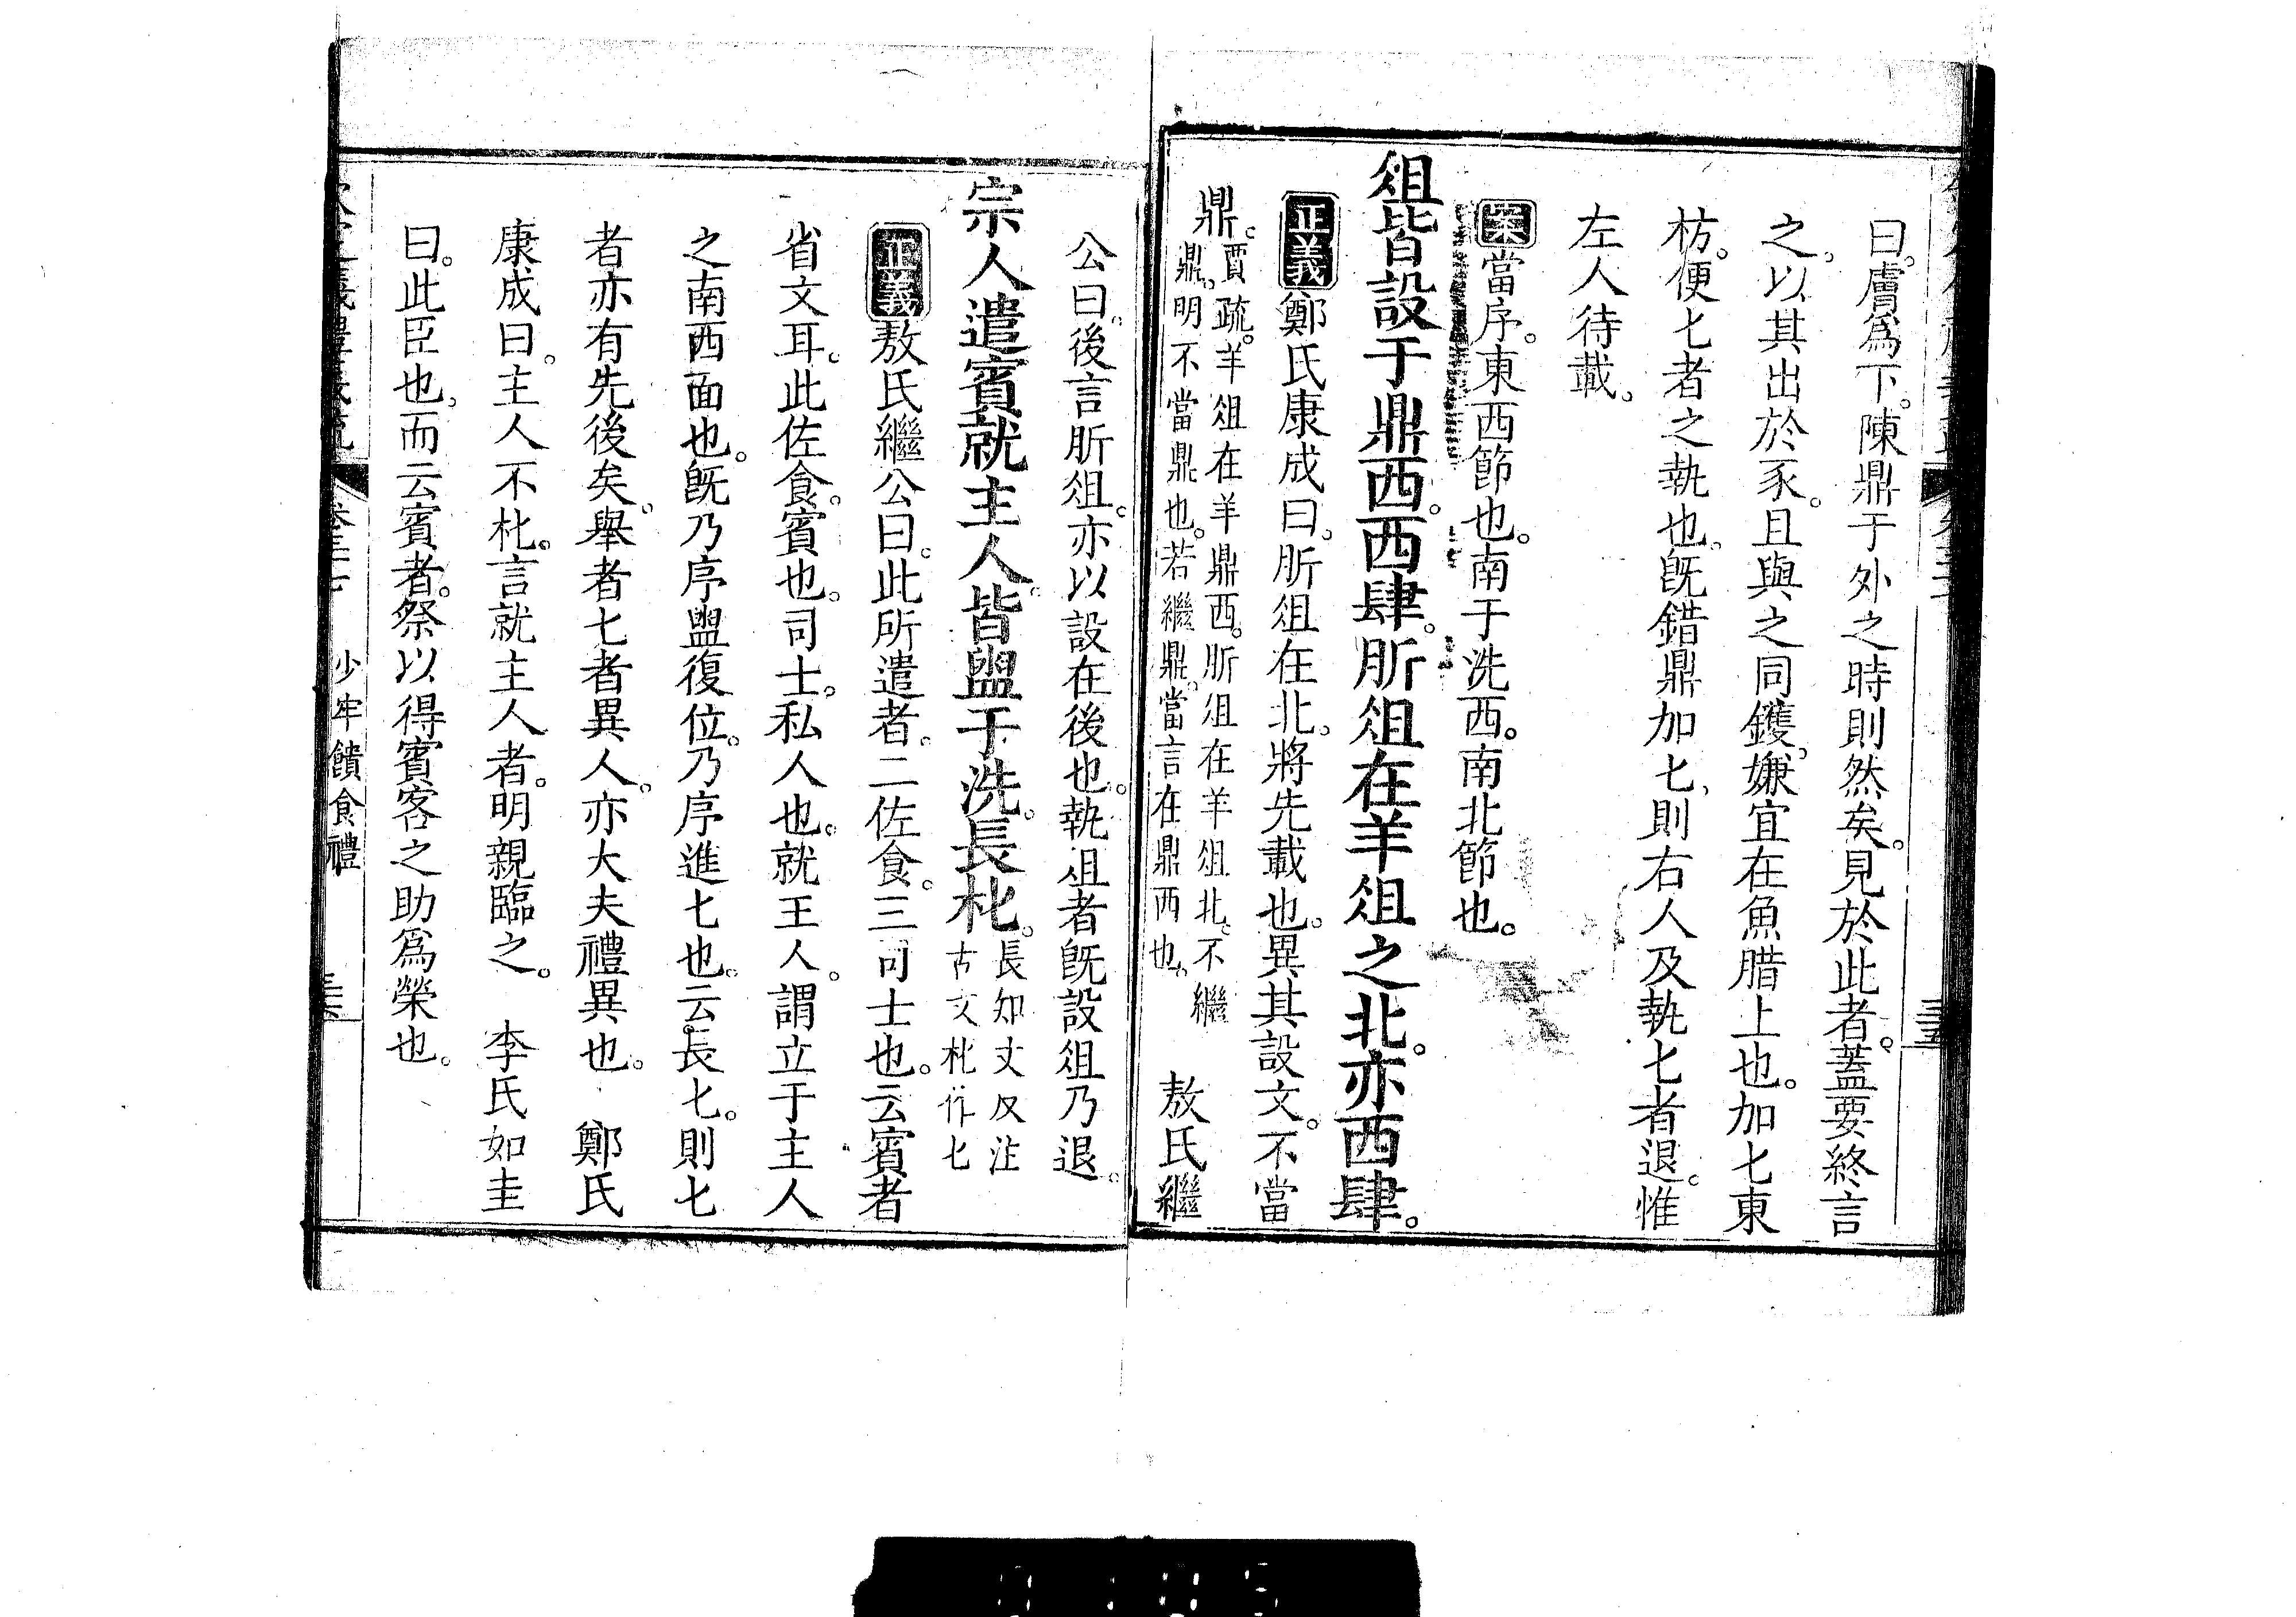 曰。膚爲下。陳鼎于外之時則然矣。見於此者。蓋要終言
之。以其出於豕。且與之同鑊。嫌宜在魚腊上也。加匕東
枋。便匕者之執也。旣錯鼎加匕。則右人及執匕者退。惟
左人待載。
案當序。東西節也。南于洗西。南北節也。
俎皆設于鼎西西肆。肵俎在羊俎之北。亦西肆。
正義鄭氏康成曰。肵俎在北。將先載也。異其設文。不當
鼎。賈疏。羊俎在羊鼎西。肵俎在羊俎北。不繼
鼎。明不當鼎也。若繼鼎。當言在鼎西也。 敖氏繼
公曰。後言肵俎。亦以設在後也。執俎者旣設俎乃退。
宗人遣賓就主人。皆盥于洗。長朼。長知丈反注
古文朼作匕
正義敖氏繼公曰。此所遣者。二佐食。三司士也。云賓者
省文耳。此佐食。賓也。司士。私人也。就主人。謂立于主人
之南西面也。旣乃序盥復位。乃序進匕也。云長匕。則匕
者亦有先後矣。舉者匕者異人。亦大夫禮異也。 鄭氏
康成曰。主人不朼。言就主人者。明親臨之。 李氏如圭
曰。此臣也。而云賓者。祭以得賓客之助爲榮也。
少牢饋食禮